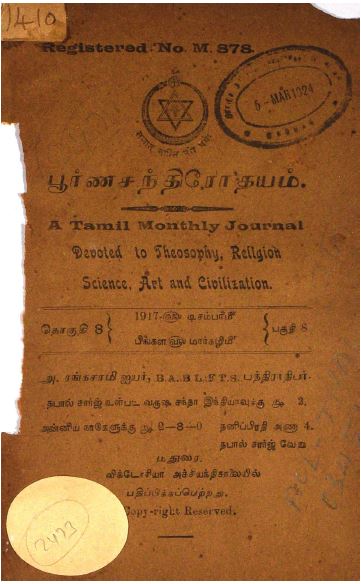 1410
Registered No. M. 878.
5-MAR 1924
பூர்ணசந்திரோதயம்.
A Tamil Monthly Journal
Devoted to Theosophy, Religion
Science, Art and Civilization.
தொகுதி 8 1917-௵ டிசம்பர்௴ பகுதி 8
பிங்கள ௵ மார்கழி௴
அ. ரங்கசாமி ஐயர், B.A.B.L.F.T.S. பத்திராதிபர்.
தபால் சார்ஜ் உள்பட வருஷ சந்தா இந்தியாவுக்கு ரூ 2.
அன்னிய நாடுகளுக்கு ரூ 2-8-0 தனிப்பிரதி அணா 4.
தபால் சார்ஜ் வேறு
மதுரை:
விக்டோரியா அச்சியந்திரசாலையில்
பதிப்பிக்கப்பெற்றது.
Copy-right Reserved.
2473